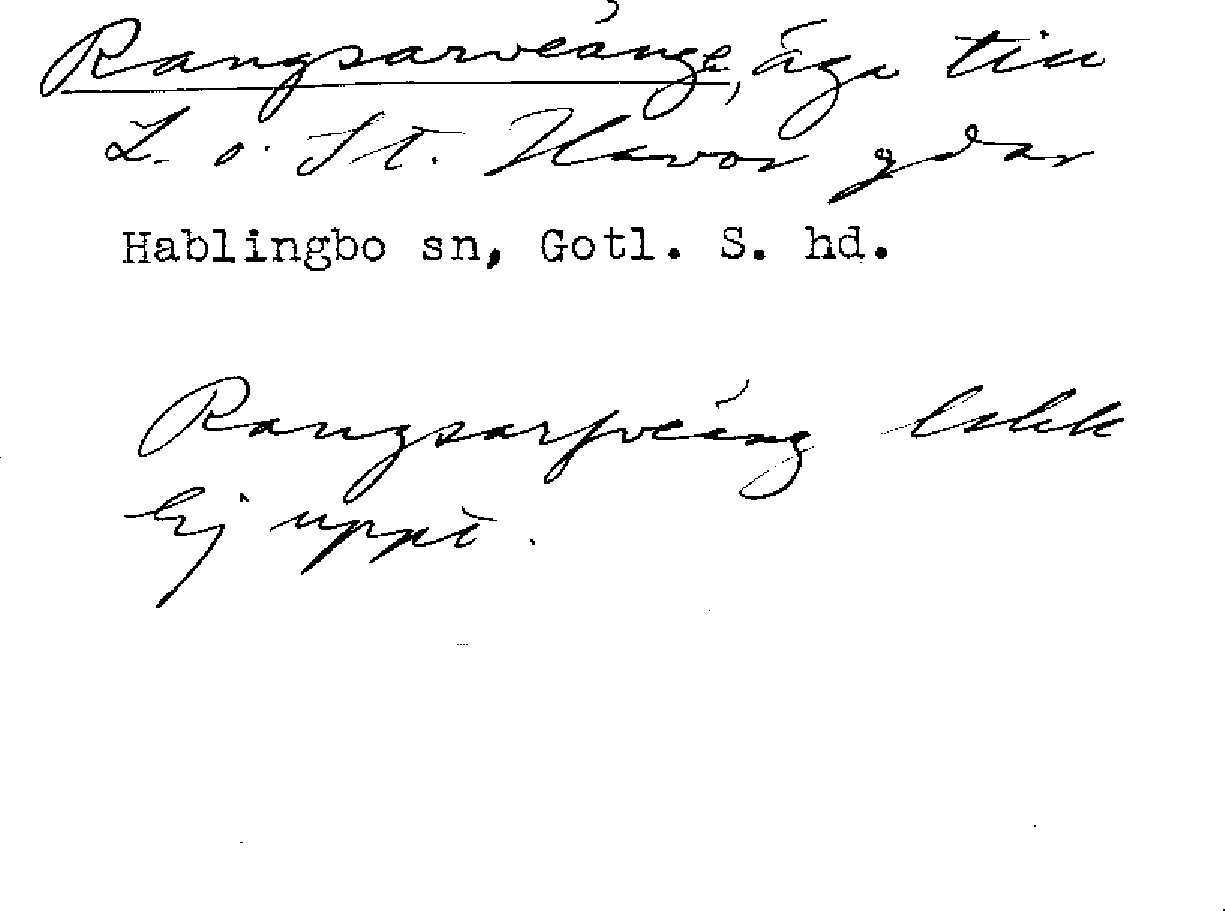 Rangsarveänge, äga till
L. o. St. Havor gdar
Hablingbo sn, Gotl. S. hd.
Rangsarfveäng
Ej uppt.